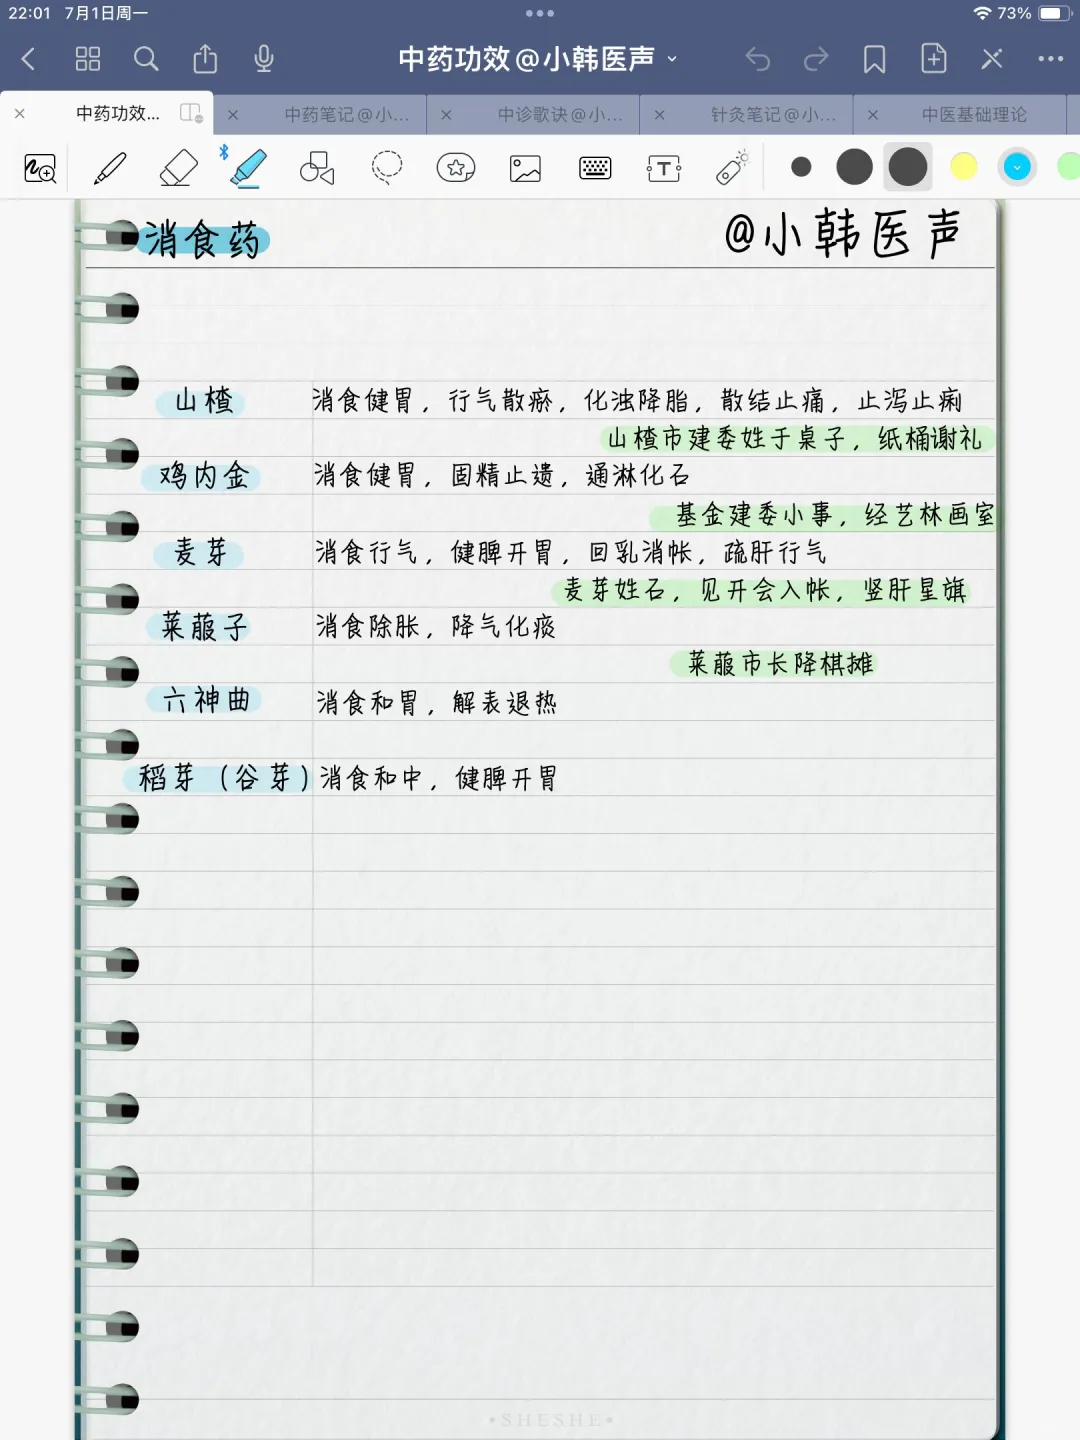 22:01 7月1日周一 73%
中药功效@小韩医声
中药功效... 中药笔记@小... 中诊歌诀@小... 针灸笔记@小... 中医基础理论
消食药 @小韩医声
山楂 消食健胃，行气散瘀，化浊降脂，散结止痛，止泻止痢
山楂市建委姓于桌子，纸桶谢礼
鸡内金 消食健胃，固精止遗，通淋化石
基金建委小事，经艺林画室
麦芽 消食行气，健脾开胃，回乳消帐，疏肝行气
麦芽姓石，见开会入帐，竖肝星旗
莱菔子 消食除胀，降气化痰
莱菔市长降棋摊
六神曲 消食和胃，解表退热
稻芽（谷芽）消食和中，健脾开胃
•SHESHE•